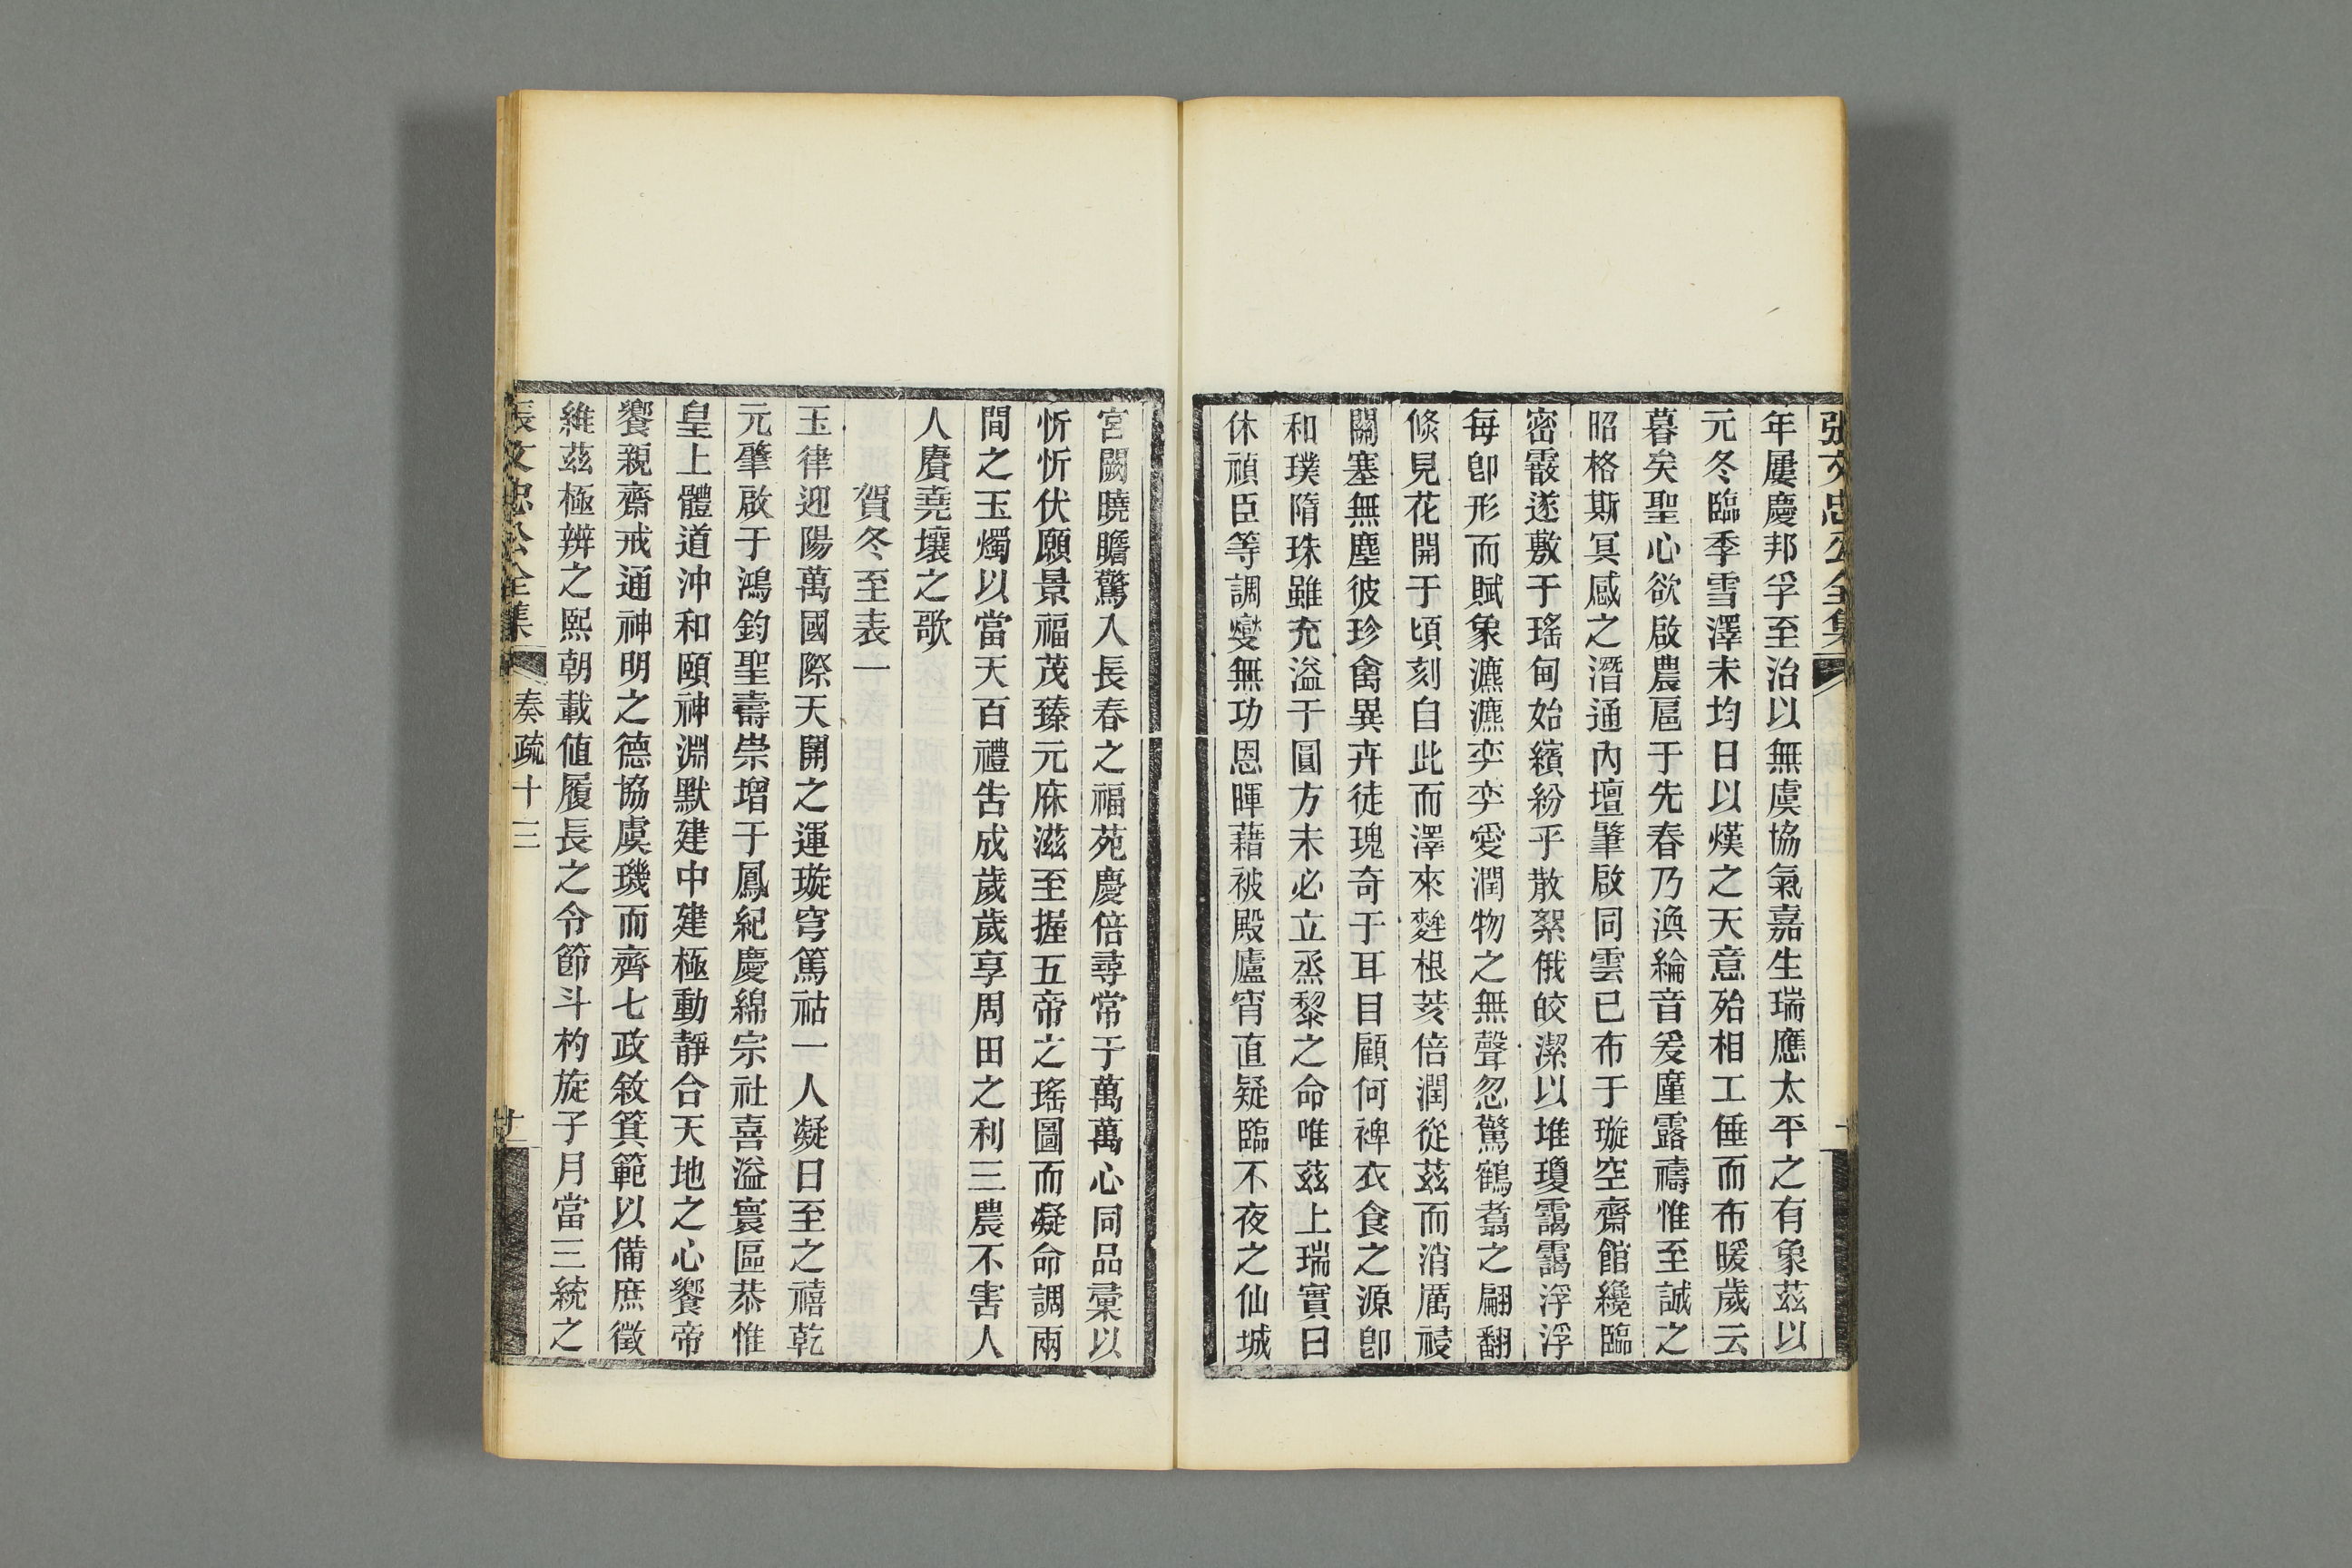 張文忠公全集
年屢慶邦孚至治以無虞協氣嘉生瑞應太平之有象茲以
元冬臨季雪澤未均日以熯之天意殆相工倕而布暖歲云
暮矣聖心欲啟農扈于先春乃渙綸音爰廑露禱惟至誠之
昭格斯冥感之潛通內壇肇啟同雲已布于璇空齋館纔臨
密霰遂敷于瑤甸始繽紛乎散絮俄皎潔以堆瓊靄靄浮浮
每卽形而賦象瀌瀌奕奕愛潤物之無聲忽驚鶴翥之翩翻
倐見花開于頃刻自此而澤來麰根荄倍潤從茲而消厲祲
關塞無塵彼珍禽異卉徒瑰奇于耳目顧何裨衣食之源卽
和璞隋珠雖充溢于圓方未必立烝黎之命唯茲上瑞實曰
休禎臣等調燮無功恩暉藉被殿廬宵直疑臨不夜之仙城
宮闕曉瞻驚入長春之福苑慶倍尋常于萬萬心同品彙以
忻忻伏願景福茂臻元庥滋至握五帝之瑤圖而凝命調兩
間之玉燭以當天百禮告成歲歲享周田之利三農不害人
人賡堯壤之歌
賀冬至表一
玉律迎陽萬國際天開之運璇穹篤祜一人凝日至之禧乾
元肇啟于鴻鈞聖壽崇增于鳳紀慶綿宗社喜溢寰區恭惟
皇上體道沖和頤神淵默建中建極動靜合天地之心饗帝
饗親齋戒通神明之德協虞璣而齊七政敘箕範以備庶徵
維茲極辨之熙朝載值履長之令節斗杓旋子月當三統之
張文忠公全集 奏疏十三